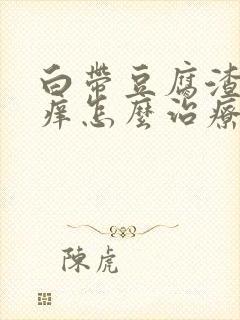 白帶豆腐渣
癢怎麼治療
陳虎